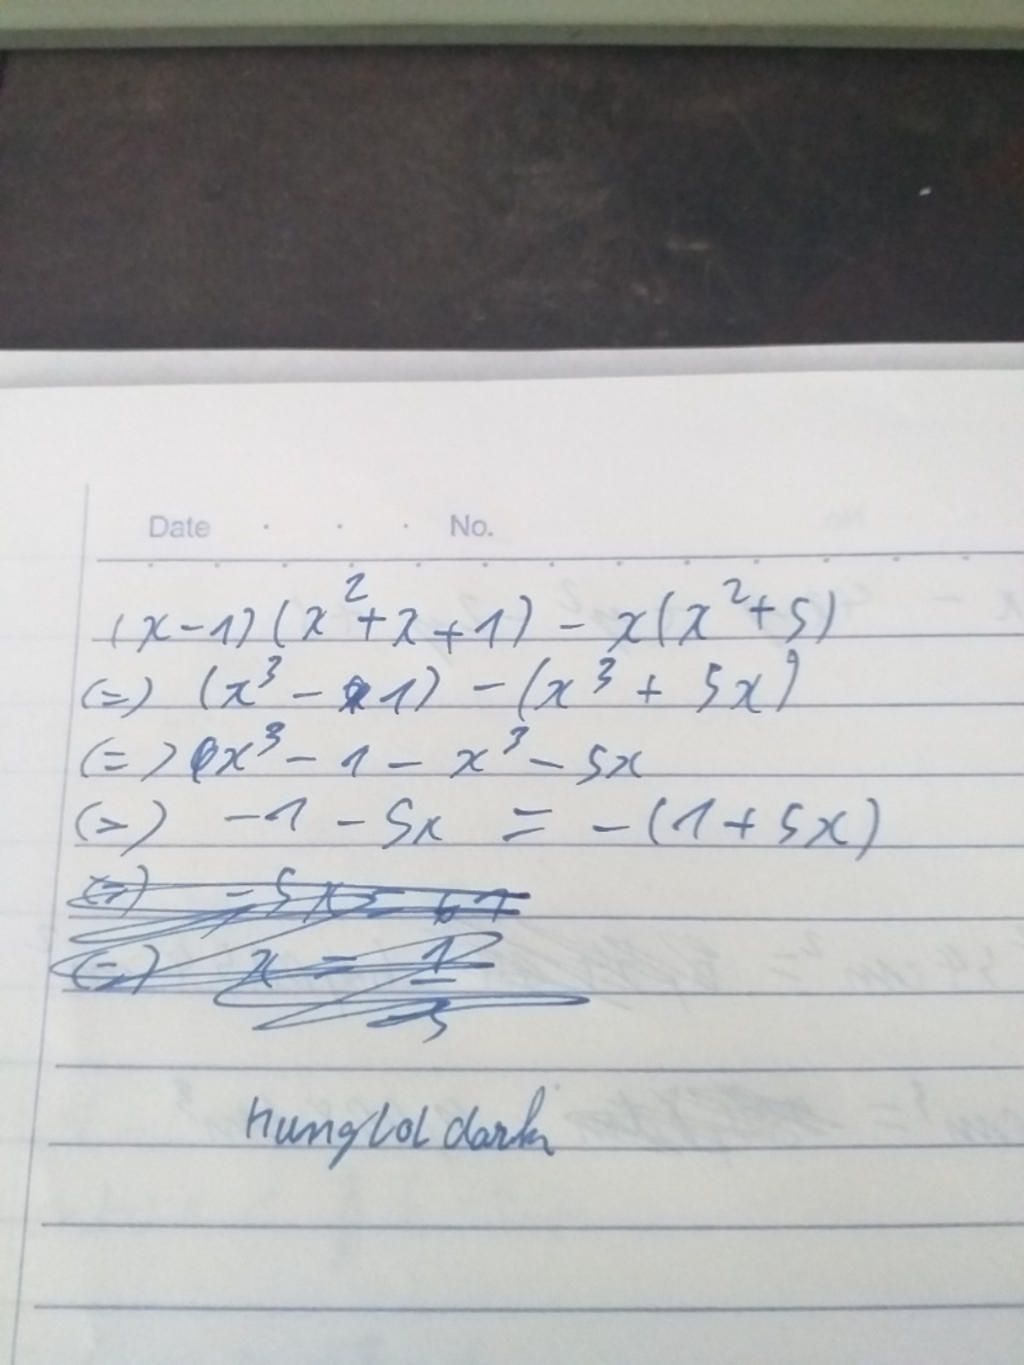 Date . . . No.
(x-1)(x²+x+1) - x(x²+5)
(=) (x³ - 1) - (x³ + 5x)
(=) x³ - 1 - x³ - 5x
(=) -1 - 5x = -(1+5x)
hunglol dark